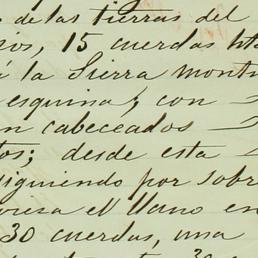 de las tierras del
ios, 15 cuerdas hta
á la Sierra montu
esquina; con
n cabeceados
tos; desde esta
siguiendo por sobre
viesa el llano en
30 cuerdas, una